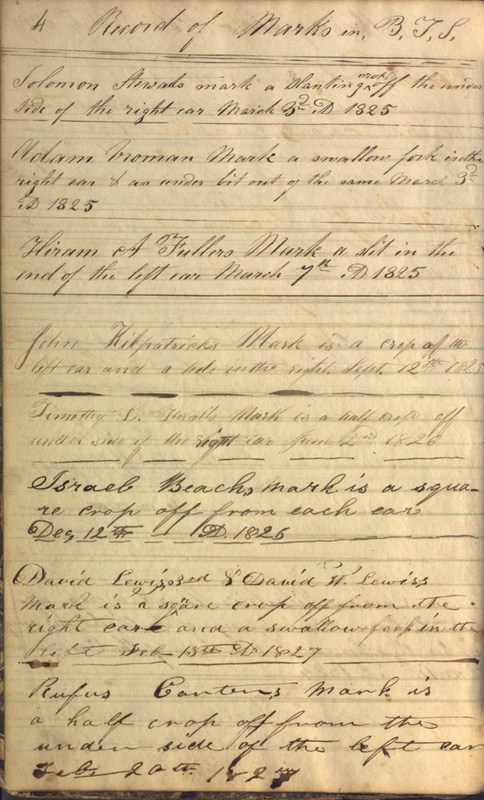 4 Record of Marks in B. T. S.
Solomon mark a Slanting crop off the under
side of the right ear March 3d AD 1825
Adam Vroman Mark a swallow fork in the
right ear & an under bit out of the same March 3d
AD 1825
Hiram A Fullers Mark a slit in the
end of the left ear March 7th AD 1825
John Kilpatricks Mark is a crop of the
left ear and a hole in the right Sept. 12th 1825
Timothy Mark is a half crop off
under side of the right ear June 2nd 1826
Israel Beachs mark is a squa-
re crop off from each ear
Dec, 12th AD 1826
David Lewis & David Lewiss
Mark is a sqare crop off from the
right ear and a swallow fork in the
left Feb 13th AD 1827
Rufus mark is
a half crop off from the
under side of the left ear
Feb. 20th 1827